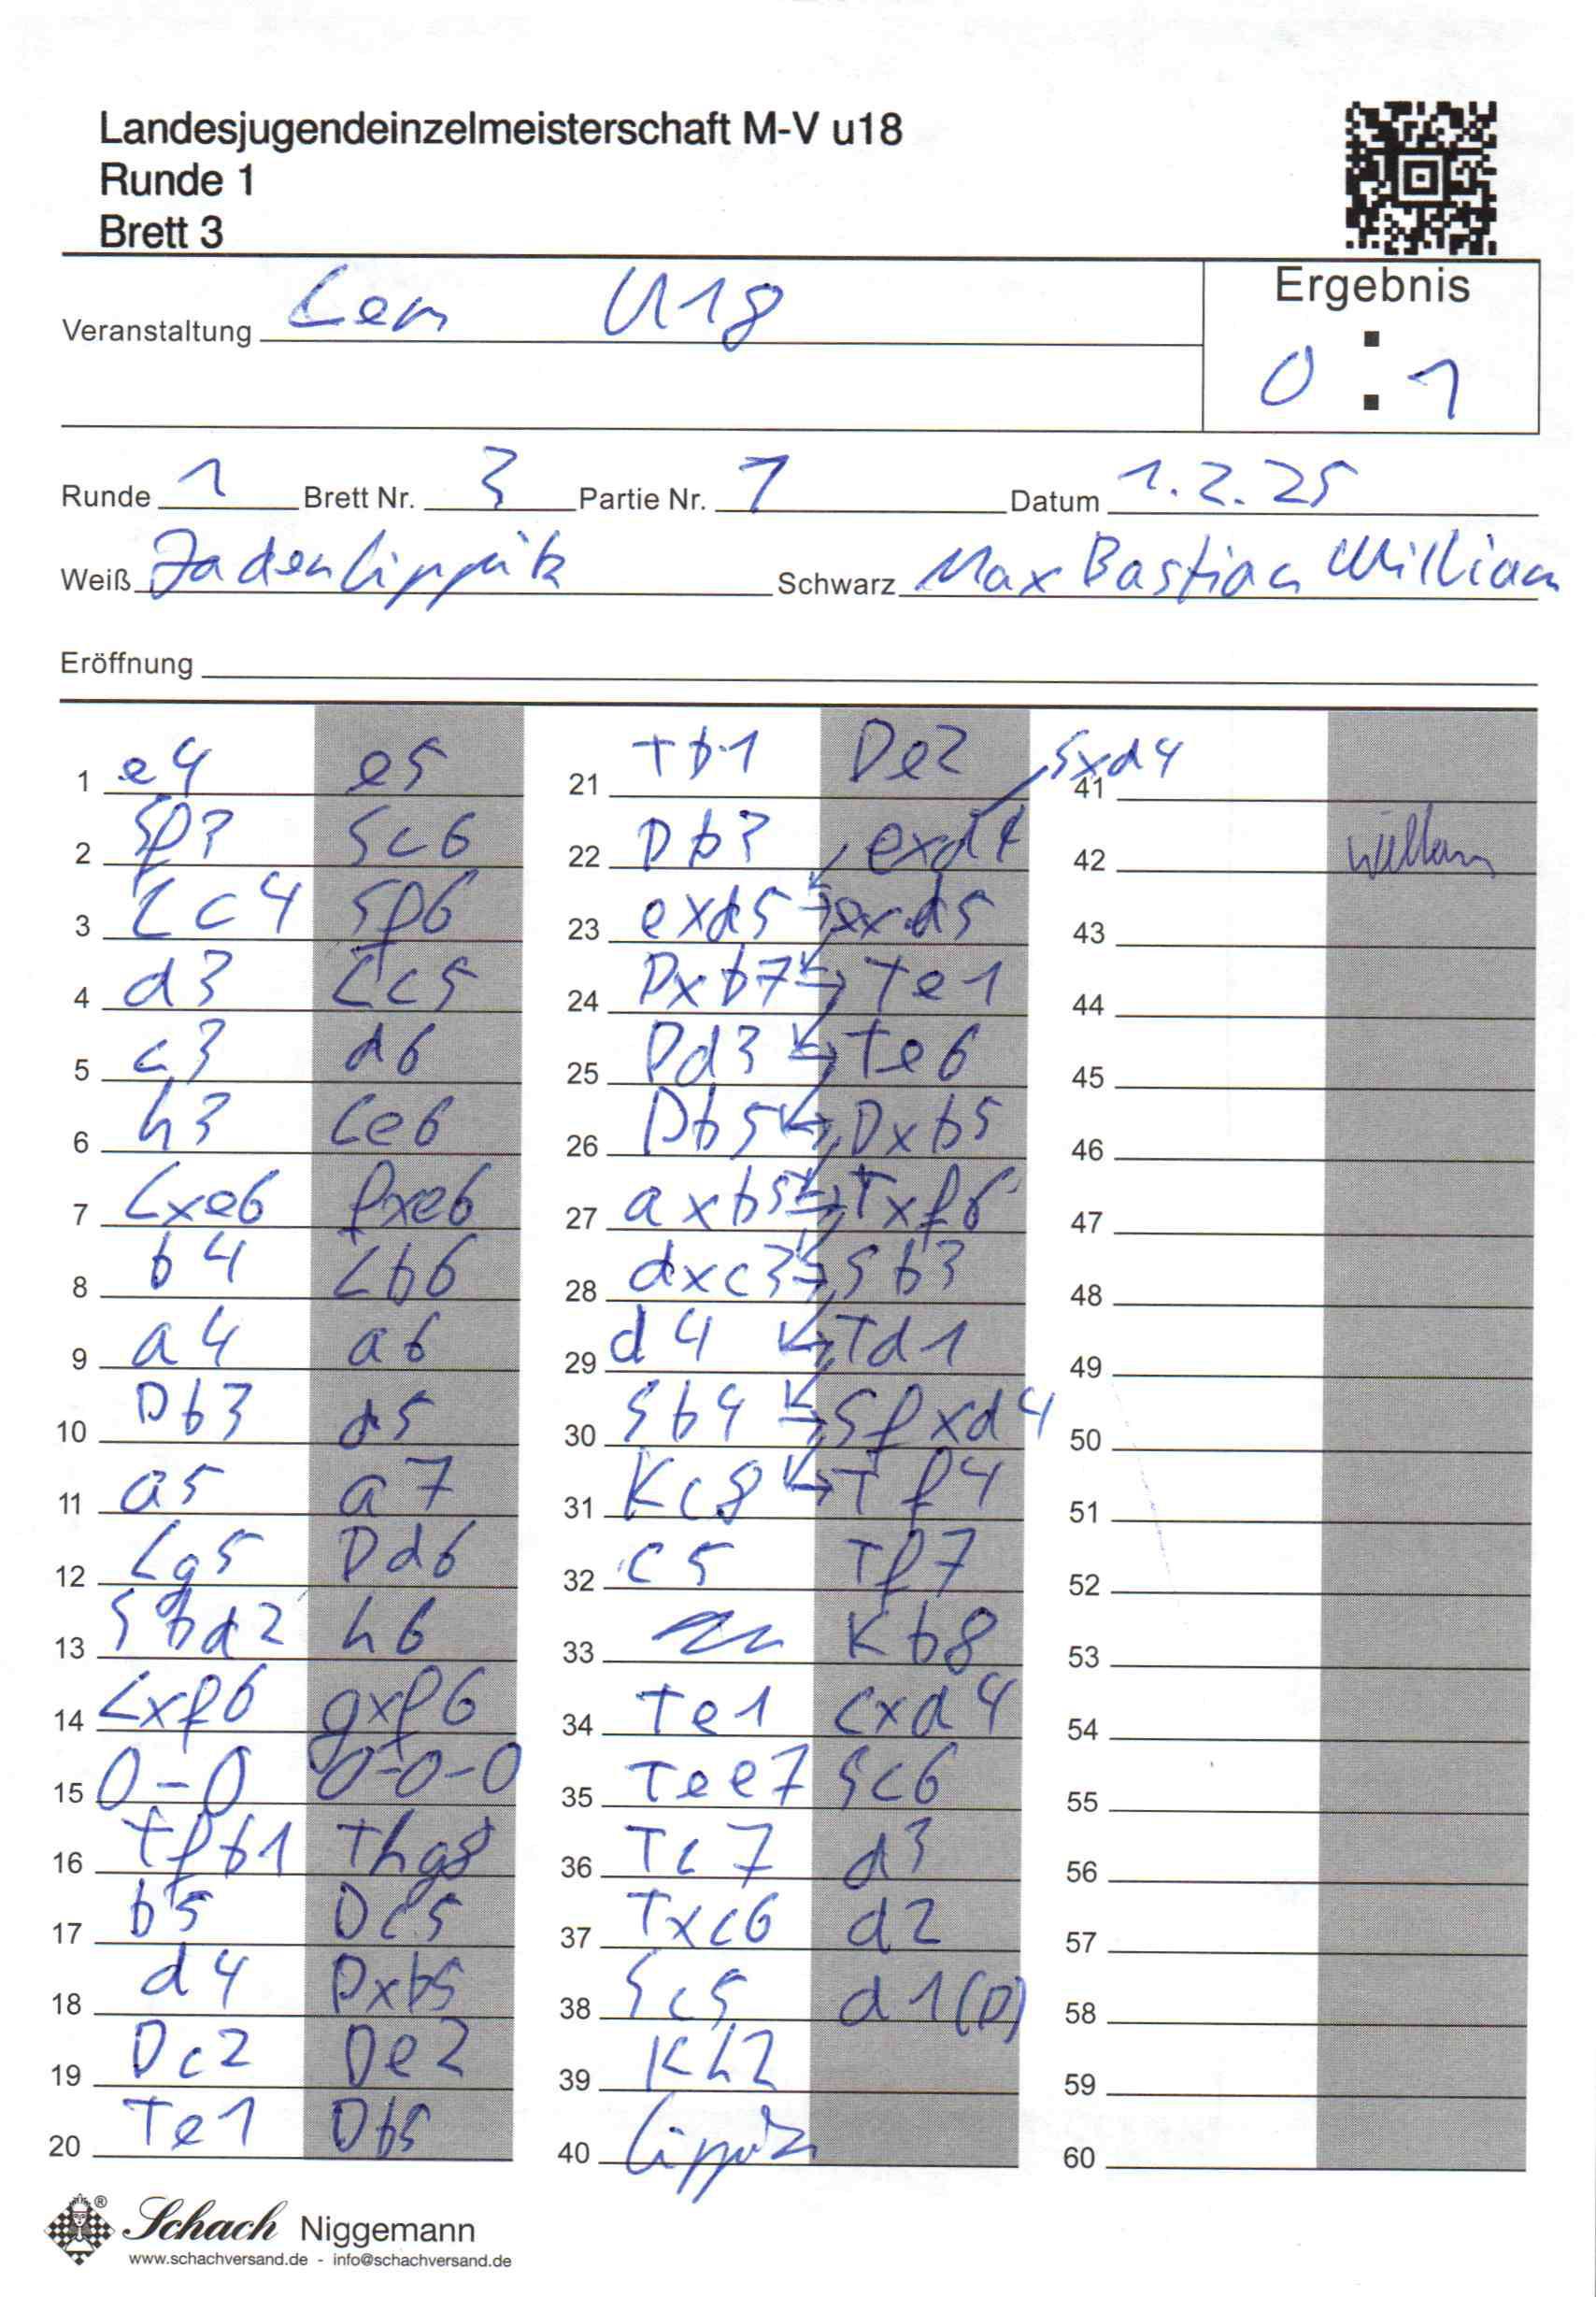 Landesjugendeinzelmeisterschaft M-V u18
Runde 1
Brett 3
Veranstaltung Lem U18
Ergebnis
0 : 1
Runde 1 Brett Nr. 3 Partie Nr. 1 Datum 1.2.25
Weiß Jaden Lippitz Schwarz Max Bastian William
Eröffnung
1 e4 e5
2 Sf3 Sc6
3 Lc4 Sf6
4 d3 Lc5
5 c3 d6
6 h3 Le6
7 Lxe6 fxe6
8 b4 Lb6
9 a4 a6
10 Db3 d5
11 a5 a7
12 Lg5 Dd6
13 Sbd2 h6
14 Lxf6 gxf6
15 0-0 0-0-0
16 Tfb1 Thg8
17 b5 Dc5
18 d4 Dxb5
19 Dc2 De2
20 Te1 Db5
21 Tb1 De2
22 Db3 exd4
23 exd5 exd5
24 Dxb7 Te1
25 Dd3 Te6
26 Db5 Dxb5
27 axb5 Txf6
28 dxc3 Sb3
29 d4 Td1
30 Sb4 Sfxd4
31 Kc8 Tf4
32 c5 Tf7
33 Kb8
34 Te1 cxd4
35 Tee7 Sc6
36 Tc7 d3
37 Txc6 d2
38 Sc5 d1(D)
39 Kh2
40 Lippitz
41 Sxd4
42 William
43
44
45
46
47
48
49
50
51
52
53
54
55
56
57
58
59
60
Schach Niggemann
www.schachversand.de - info@schachversand.de